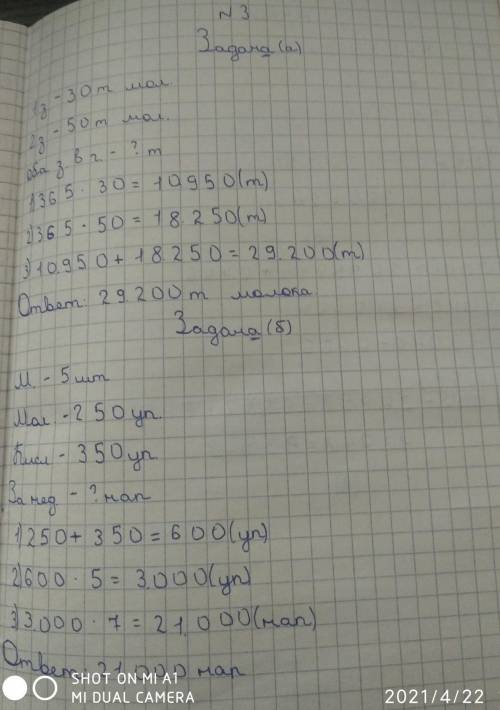 № 3
Задача (а)
1з - 30 т мол.
2з - 50 т мол.
оба з. в г. - ? т
1) 365 · 30 = 10.950 (т)
2) 365 · 50 = 18.250 (т)
3) 10.950 + 18.250 = 29.200 (т)
Ответ: 29.200 т молока
Задача (б)
М. - 5 шт
Мол. - 250 уп.
Кисл - 350 уп
За нед - ? нап
1) 250 + 350 = 600 (уп)
2) 600 · 5 = 3.000 (уп)
3) 3.000 · 7 = 21.000 (нап)
Ответ: 21.000 нап
SHOT ON MI A1
MI DUAL CAMERA
2021/4/22